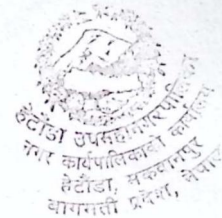 हेटौंडा उपमहानगरपालिका
नगर कार्यपालिकाको कार्यालय
हेटौंडा, मकवानपुर
बागमती प्रदेश, नेपाल